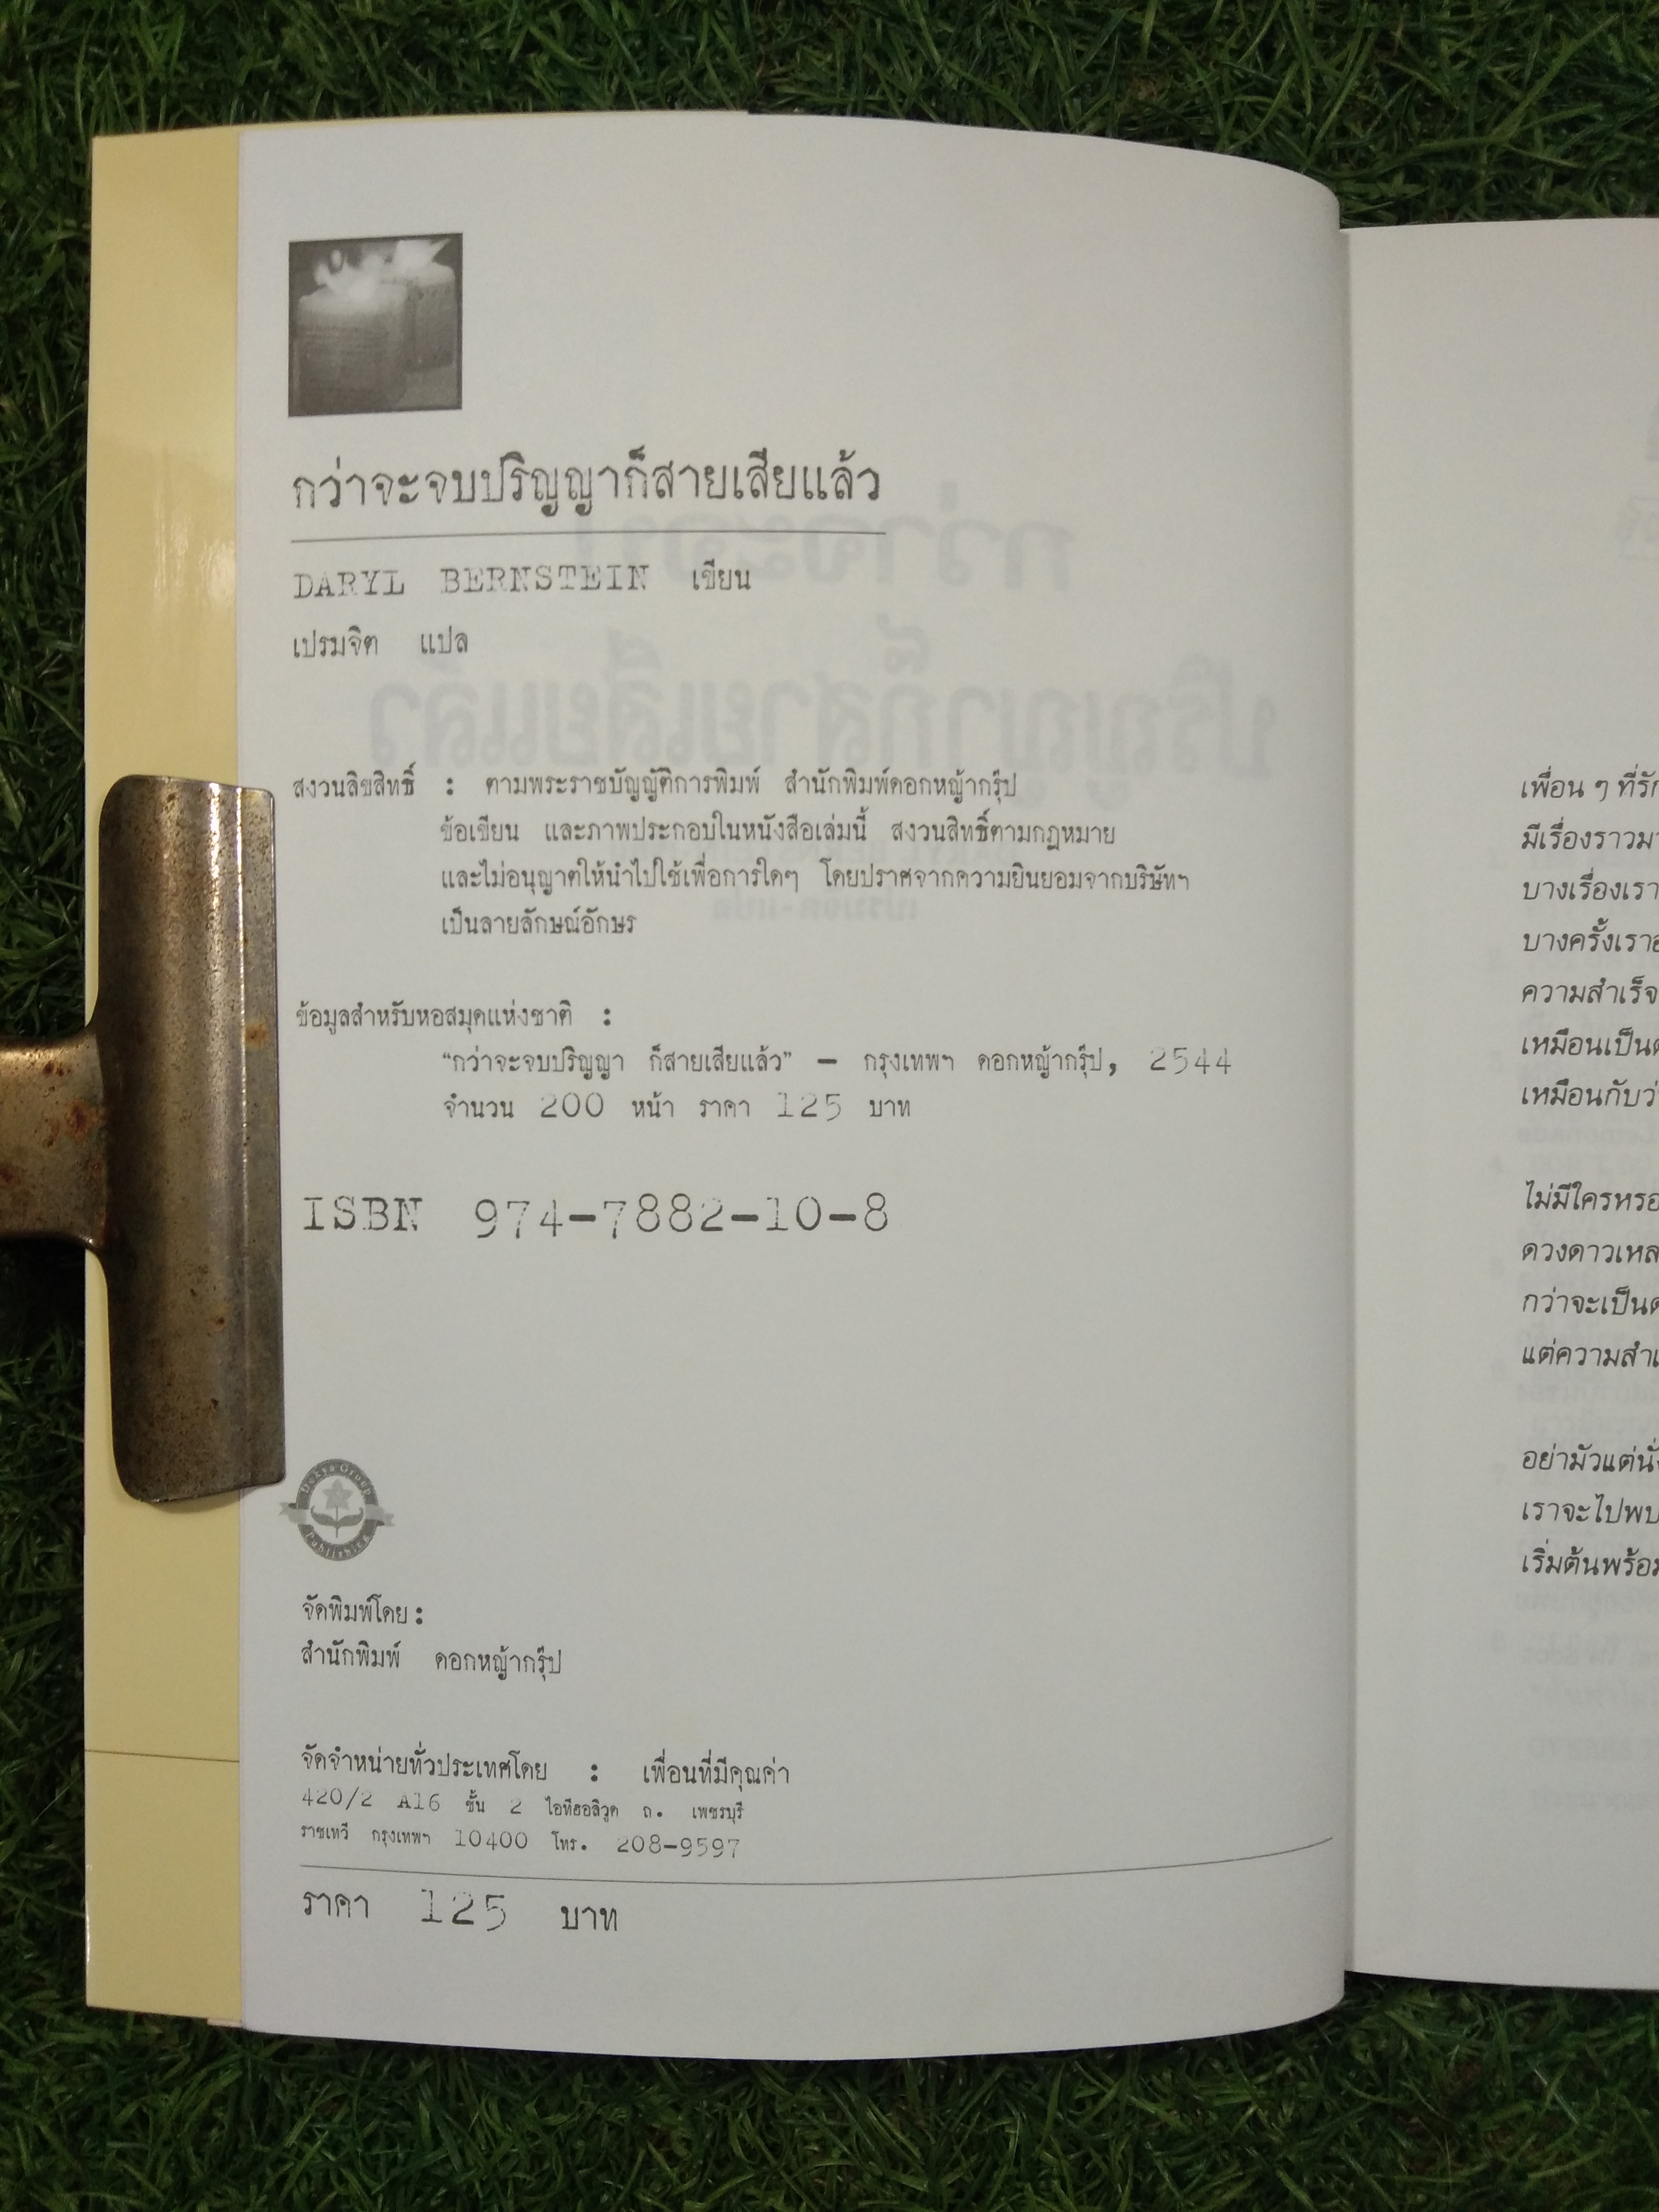 กว่าจะจบปริญญาก็สายเสียแล้ว
DARYL BERNSTEIN เขียน
เปรมจิต แปล
สงวนลิขสิทธิ์ : ตามพระราชบัญญัติการพิมพ์ สำนักพิมพ์ดอกหญ้ากรุ๊ป
ข้อเขียน และภาพประกอบในหนังสือเล่มนี้ สงวนสิทธิ์ตามกฎหมาย
และไม่อนุญาตให้นำไปใช้เพื่อการใดๆ โดยปราศจากความยินยอมจากบริษัทฯ
เป็นลายลักษณ์อักษร
ข้อมูลสำหรับหอสมุดแห่งชาติ :
“กว่าจะจบปริญญา ก็สายเสียแล้ว” – กรุงเทพฯ ดอกหญ้ากรุ๊ป, 2544
จำนวน 200 หน้า ราคา 125 บาท
ISBN 974-7882-10-8
Dokya Group
Publishing
จัดพิมพ์โดย:
สำนักพิมพ์ ดอกหญ้ากรุ๊ป
จัดจำหน่ายทั่วประเทศโดย : เพื่อนที่มีคุณค่า
420/2 A16 ชั้น 2 ไอทีฮอลิวูด ถ. เพชรบุรี
ราชเทวี กรุงเทพฯ 10400 โทร. 208-9597
ราคา 125 บาท
เพื่อน ๆ ที่รัก
มีเรื่องราวมา
บางเรื่องเรา
บางครั้งเรา
ความสำเร็จ
เหมือนเป็น
เหมือนกับว่
ไม่มีใครหรอ
ดวงดาวเหล
กว่าจะเป็น
แต่ความสำเ
อย่ามัวแต่นั่
เราจะไปพบ
เริ่มต้นพร้อม